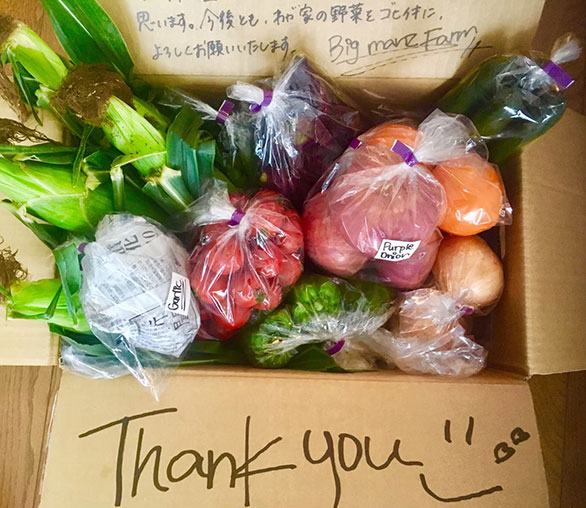 思います。今後とも、わが家の野菜をゴヒイキに、
よろしくお願いいたします。
Big manz Farm
Purple
Onion
Garlic
Thank you